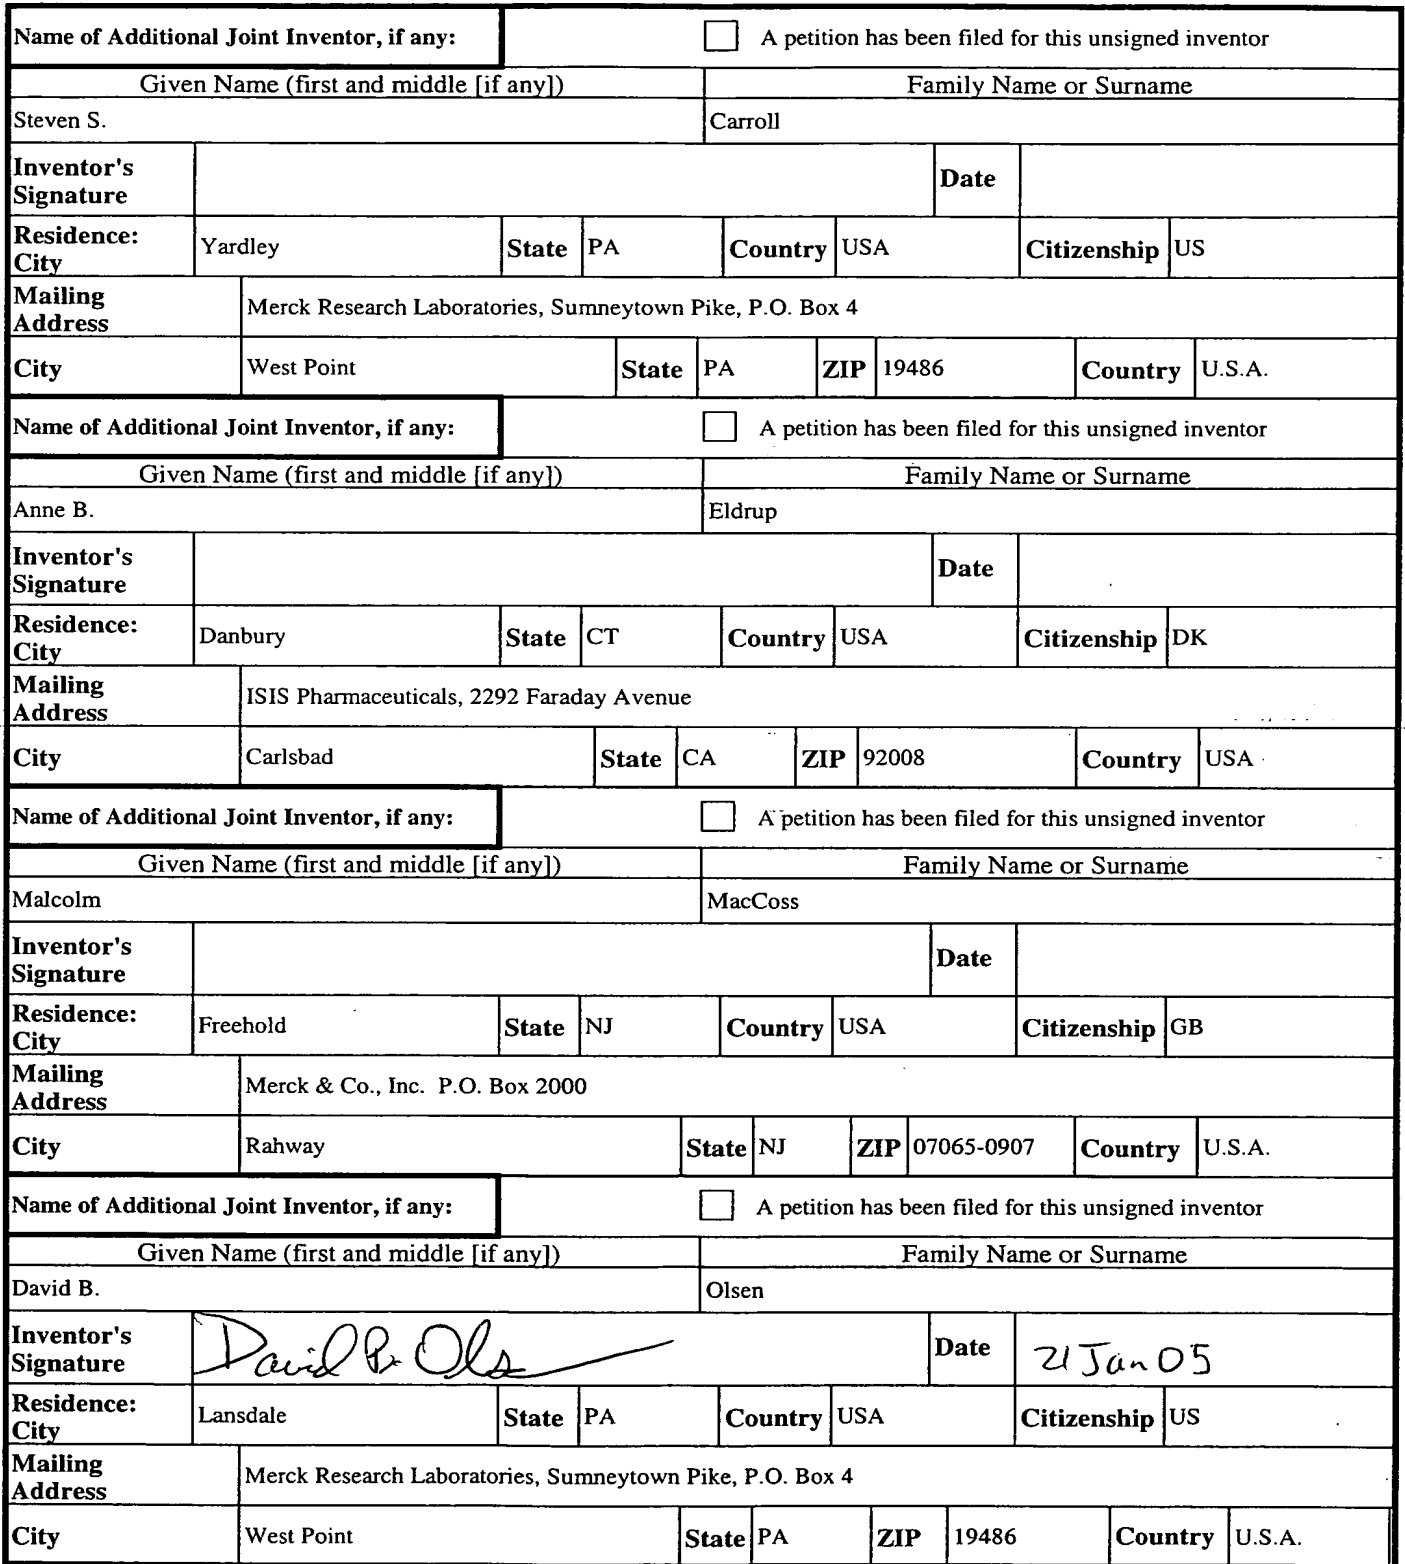 Name of Additional Joint Inventor, if any: A petition has been filed for this unsigned inventor
Given Name (first and middle [if any]) Family Name or Surname
Steven S. Carroll
Inventor's Signature Date
Residence: City Yardley State PA Country USA Citizenship US
Mailing Address Merck Research Laboratories, Sumneytown Pike, P.O. Box 4
City West Point State PA ZIP 19486 Country U.S.A.
Name of Additional Joint Inventor, if any: A petition has been filed for this unsigned inventor
Given Name (first and middle [if any]) Family Name or Surname
Anne B. Eldrup
Inventor's Signature Date
Residence: City Danbury State CT Country USA Citizenship DK
Mailing Address ISIS Pharmaceuticals, 2292 Faraday Avenue
City Carlsbad State CA ZIP 92008 Country USA
Name of Additional Joint Inventor, if any: A petition has been filed for this unsigned inventor
Given Name (first and middle [if any]) Family Name or Surname
Malcolm MacCoss
Inventor's Signature Date
Residence: City Freehold State NJ Country USA Citizenship GB
Mailing Address Merck & Co., Inc. P.O. Box 2000
City Rahway State NJ ZIP 07065-0907 Country U.S.A.
Name of Additional Joint Inventor, if any: A petition has been filed for this unsigned inventor
Given Name (first and middle [if any]) Family Name or Surname
David B. Olsen
Inventor's Signature David B. Olsen Date 21 Jan 05
Residence: City Lansdale State PA Country USA Citizenship US
Mailing Address Merck Research Laboratories, Sumneytown Pike, P.O. Box 4
City West Point State PA ZIP 19486 Country U.S.A.